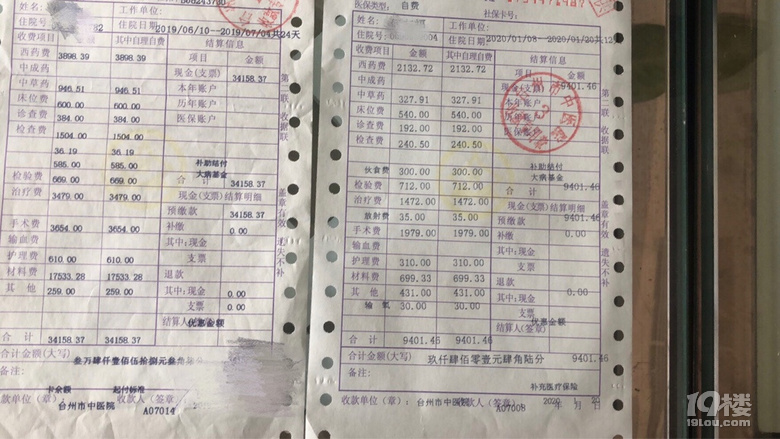 姓名
工作单位:
住院号
82
住院日期:2019/06/10--2019/07/04共24天
收费项目 金额 其中自理自费 结算信息
西药费 3898.39 3898.39 项目 金额
中成药 现金(支票) 34158.37
中草药 946.51 946.51 本年账户
床位费 1504.00 历年账户
诊查费 384.00 384.00 医保账户
检查费 1504.00 1504.00
36.19 36.19
585.00 585.00 补助结付
大病基金
检验费 669.00 669.00 合计 34158.37
治疗费 3479.00 3479.00 现金(支票)结算明细
预缴款 34158.37
手术费 3654.00 3654.00 补缴 0.00
输血费 其中:现金
护理费 610.00 610.00 支票
材料费 17533.28 17533.28 退款
其他 259.00 259.00 其中:现金 0.00
支票 0.00
结算人(签章)
优惠金额
合计 34158.37 34158.37
合计金额(大写) 叁万肆仟壹佰伍拾捌元叁角
备注:
卡余额 起付标准
收款单位(章): 台州市中医院 收款人(签章) A07014
第二联 收据联
盖章有效 遗失不补
医保类型: 自费 社保卡号:
姓名 工作单位:
住院号 04 住院日期: 2020/01/08--2020/01/20共12
收费项目 金额 其中自理自费 结算信息
西药费 2132.72 2132.72 项目 金额
中成药 现金(支票) 9401.46
中草药 327.91 327.91 本年账户
床位费 540.00 540.00 历年账户
诊查费 192.00 192.00 医保账户
检查费 240.50 240.50
伙食费 300.00 300.00 补助结付
大病基金
检验费 712.00 712.00 合计 9401.46
治疗费 1472.00 1472.00 现金(支票)结算明细
放射费 35.00 35.00 预缴款 9401.46
手术费 1979.00 1979.00 补缴 0.00
输血费 其中:现金
护理费 310.00 310.00 支票
材料费 699.33 699.33 退款
其他 431.00 431.00 其中:现金 0.00
输氧 30.00 30.00 支票
优惠金额
合计 9401.46 9401.46 结算人(签章)
合计金额(大写) 玖仟肆佰零壹元肆角陆分 9401.46
备注:
补充医疗保险
收款单位(章): 台州市中医院 收款人(签章) A07008 2020 年 月 20 日
第二联 收据联
盖章有效 遗失不补
19楼
19lou.com